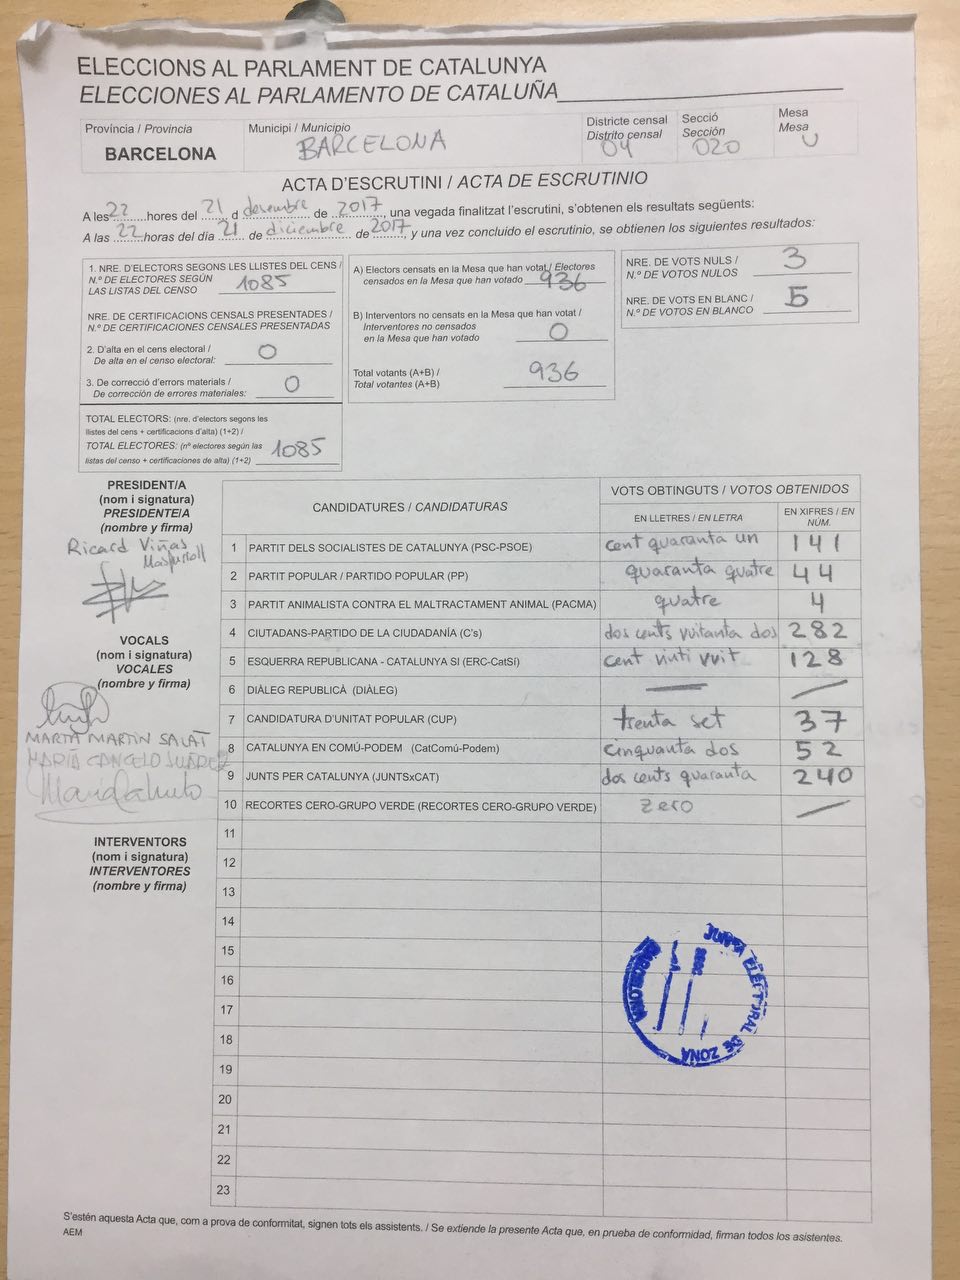 ELECCIONS AL PARLAMENT DE CATALUNYA
ELECCIONES AL PARLAMENTO DE CATALUÑA
Província / Provincia
BARCELONA
Municipi / Municipio
BARCELONA
Districte censal
Distrito censal
04
Secció
Sección
020
Mesa
Mesa
U
ACTA D'ESCRUTINI / ACTA DE ESCRUTINIO
A les 22 hores del 21 d desembre de 2017, una vegada finalitzat l'escrutini, s'obtenen els resultats següents:
A las 22 horas del día 21 de diciembre de 2017, y una vez concluido el escrutinio, se obtienen los siguientes resultados:
1. NRE. D'ELECTORS SEGONS LES LLISTES DEL CENS /
N.º DE ELECTORES SEGÚN
LAS LISTAS DEL CENSO 1085
NRE. DE CERTIFICACIONS CENSALS PRESENTADES /
N.º DE CERTIFICACIONES CENSALES PRESENTADAS
2. D'alta en el cens electoral /
De alta en el censo electoral: 0
3. De correcció d'errors materials /
De corrección de errores materiales: 0
TOTAL ELECTORS: (nre. d'electors segons les
llistes del cens + certificacions d'alta) (1+2) /
TOTAL ELECTORES: (nº electores según las
listas del censo + certificaciones de alta) (1+2) 1085
A) Electors censats en la Mesa que han votat / Electores
censados en la Mesa que han votado 936
B) Interventors no censats en la Mesa que han votat /
Interventores no censados
en la Mesa que han votado 0
Total votants (A+B) /
Total votantes (A+B) 936
NRE. DE VOTS NULS /
N.º DE VOTOS NULOS 3
NRE. DE VOTS EN BLANC /
N.º DE VOTOS EN BLANCO 5
PRESIDENT/A
(nom i signatura)
PRESIDENTE/A
(nombre y firma)
Ricard Viñas
VOCALS
(nom i signatura)
VOCALES
(nombre y firma)
MARTA MARTIN SALAT
MARÍA CANCELO SUÁREZ
INTERVENTORS
(nom i signatura)
INTERVENTORES
(nombre y firma)
CANDIDATURES / CANDIDATURAS
VOTS OBTINGUTS / VOTOS OBTENIDOS
EN LLETRES / EN LETRA
EN XIFRES / EN NÚM.
1 PARTIT DELS SOCIALISTES DE CATALUNYA (PSC-PSOE) cent quaranta un 141
2 PARTIT POPULAR / PARTIDO POPULAR (PP) quaranta quatre 44
3 PARTIT ANIMALISTA CONTRA EL MALTRACTAMENT ANIMAL (PACMA) quatre 4
4 CIUTADANS-PARTIDO DE LA CIUDADANÍA (C's) dos cents vuitanta dos 282
5 ESQUERRA REPUBLICANA - CATALUNYA SI (ERC-CatSí) cent vinti vuit 128
6 DIÀLEG REPUBLICÀ (DIÀLEG)
7 CANDIDATURA D'UNITAT POPULAR (CUP) trenta set 37
8 CATALUNYA EN COMÚ-PODEM (CatComú-Podem) cinquanta dos 52
9 JUNTS PER CATALUNYA (JUNTSxCAT) dos cents quaranta 240
10 RECORTES CERO-GRUPO VERDE (RECORTES CERO-GRUPO VERDE) zero
11
12
13
14
15
16
17
18
19
20
21
22
23
JUNTA ELECTORAL DE ZONA
BARCELONA
S'estén aquesta Acta que, com a prova de conformitat, signen tots els assistents. / Se extiende la presente Acta que, en prueba de conformidad, firman todos los asistentes.
AEM